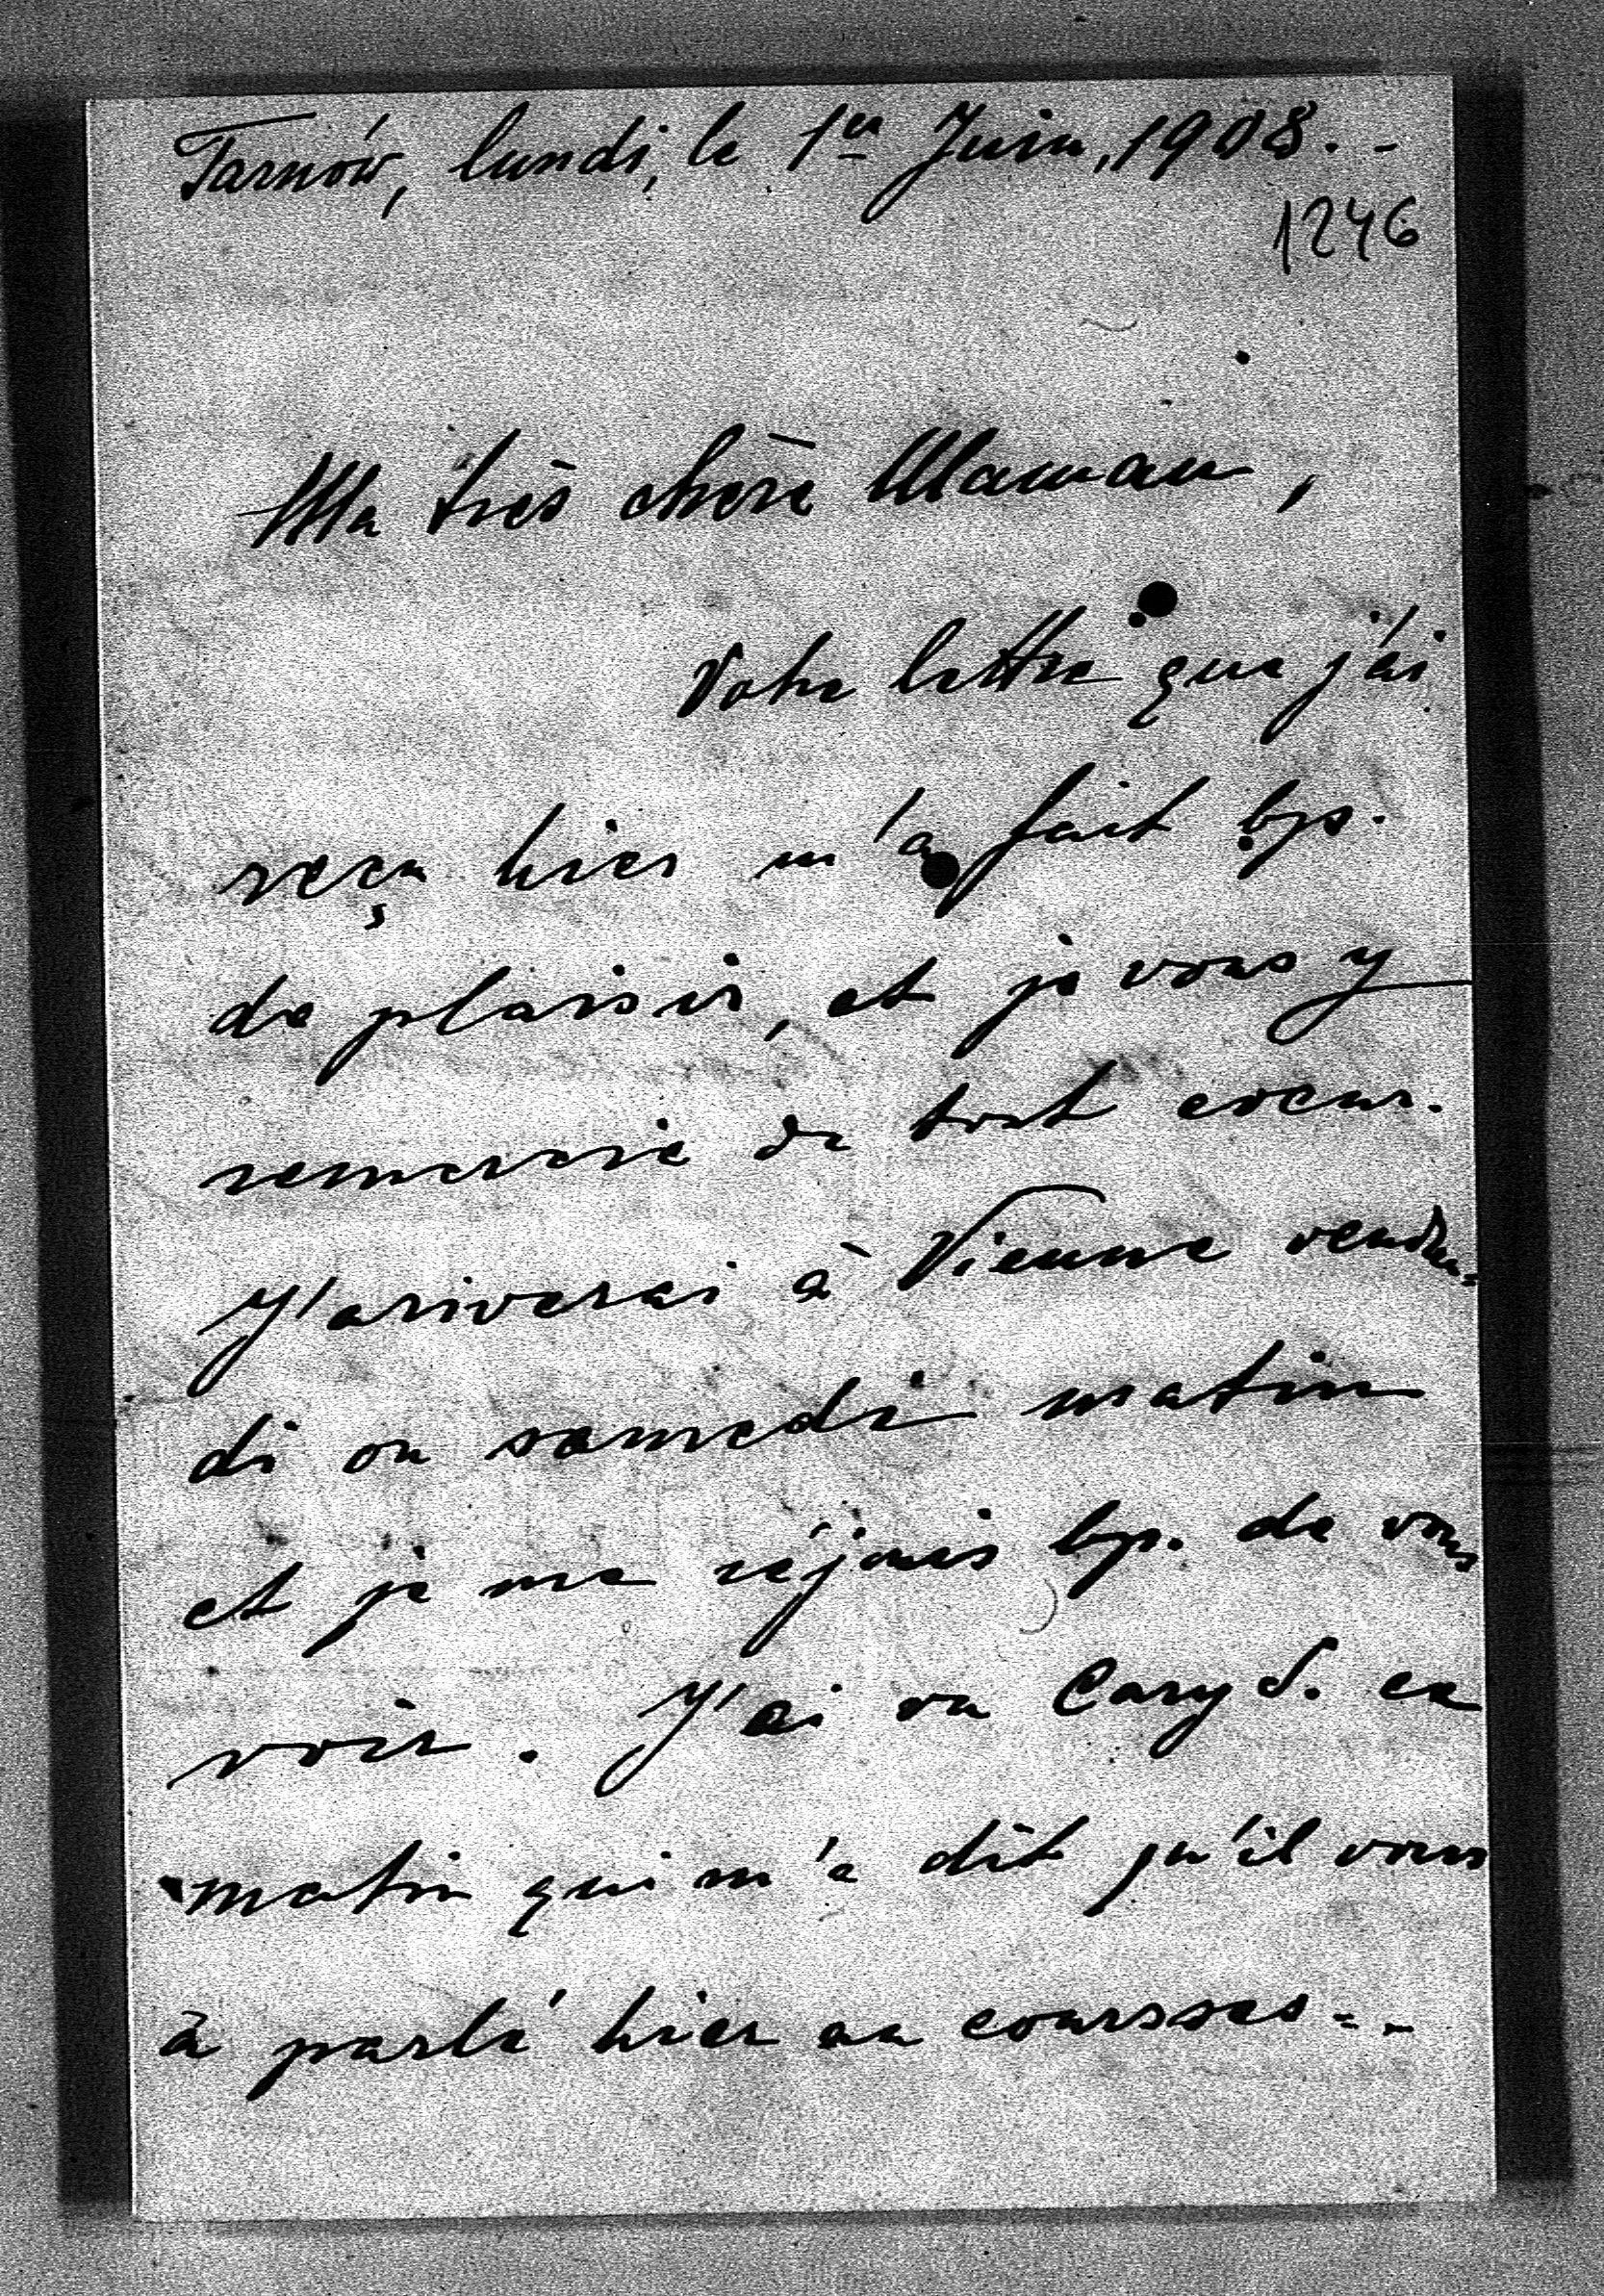 Tarnów, lundi, le 1er Juin, 1908. -
1246
Ma très chère Maman,
Votre lettre que j'ai
reçu hier m'a fait bp.
de plaisir, et je vous y
remercie de tout coeur.
J'ariverai à Vienne vendre=
di ou samedi matin
et je me réjouis bp. de vous
voir. J'ai vu Cary S. ce
matin qui m'a dit qu'il vous
à parlé hier au coursses. -